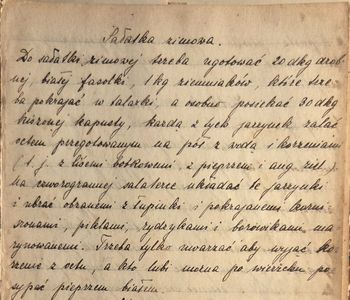 Sałatka zimowa.
Do sałatki zimowej trzeba ugotować 20 dkg drob
nej białej fasolki, 1 kg ziemniaków, które trze
ba pokrajać w talarki, a osobno posiekać 30 dkg
kiszonej kapusty, każdą z tych jarzynek zalać
octem przegotowanym na pół z wodą i korzeniami
(t. j. z liśćmi bobkowemi z pieprzem i ang. ziel.)
na czworogrannej salaterce układać te jarzynki
i ubrać obranemi z łupinki i pokrajanemi korni
szonami, piklami, rydzykami i borowikami ma
rynowanemi. Trzeba tylko uważać aby wyjąć ko
rzenie z octu, a kto lubi można po wierzchu po
sypać pieprzem białym.